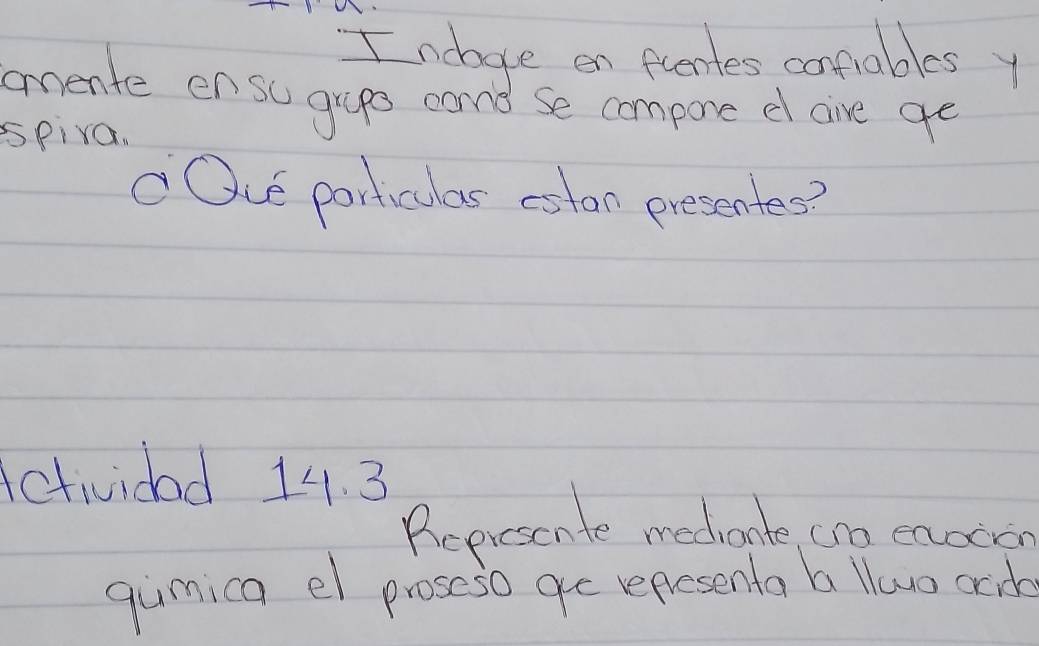 Indage en fuentes confiables y
amente ensu grupo como se compone el aire qe
spira.
¿Qué particulas estan presentes?
Actividad 14.3
Represente mediante una ecuación
quimica el proseso que representa la lluvia acida